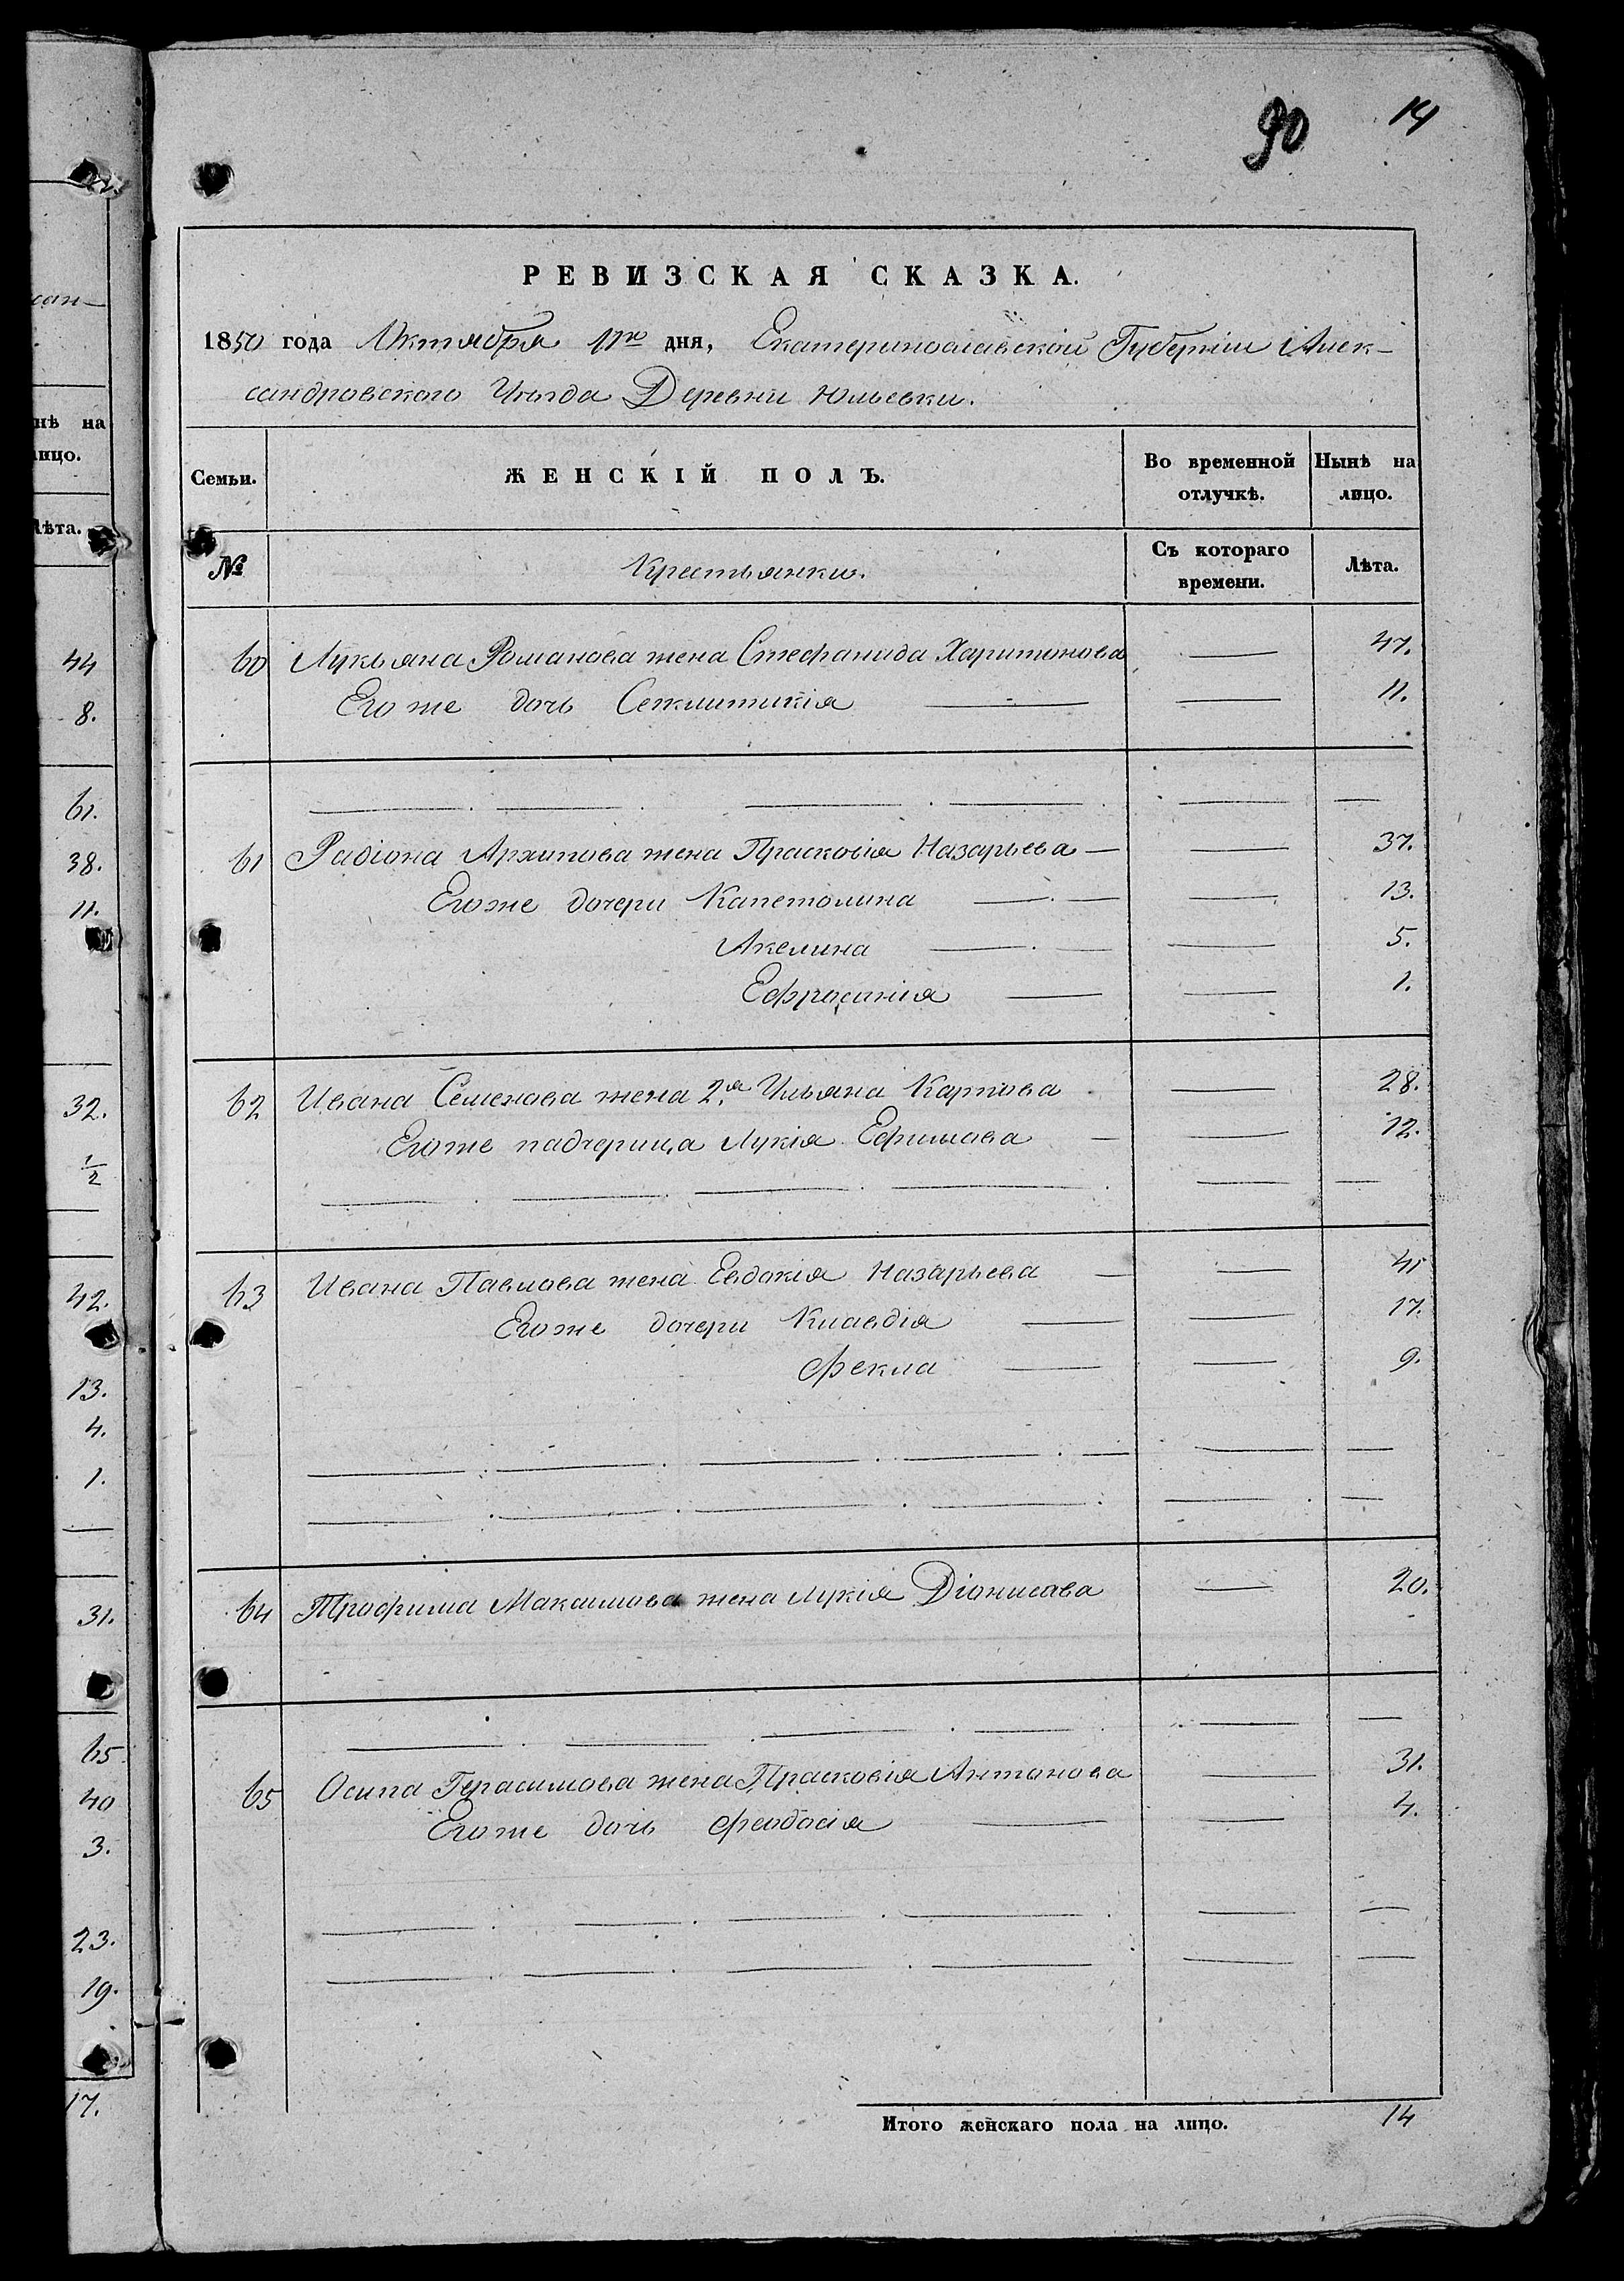 90 14
РЕВИЗСКАЯ СКАЗКА.
1850 года Октября 11го дня, Екатеринославской Губерніи Алек-
сандровского Уѣзда Деревни Юльевки.
Семьи. ЖЕНСКІЙ ПОЛЪ. Во временной отлучкѣ. Нынѣ на лицо.
№ Крестьянки. Съ котораго времени. Лѣта.
60 Лукьяна Романова жена Стефанида Харитонова — 47.
Его же дочь Секлитикія — — 11.
61 Радіона Архипова жена Прасковія Назарьева — — 37.
Его же дочери Капетолина — — 13.
Акелина — — 5.
Ефрасинія — — 1.
62 Ивана Семенова жена 2.я Ульяна Карпова — 28.
Его же падчерица Лукія Ефимова — — 12.
63 Ивана Павлова жена Евдокія Назарьева — — 41
Его же дочери Клавдія — — 17.
Фекла — — 9.
64 Трофима Максимова жена Лукія Діонисова — 20.
65 Осипа Герасимова жена Прасковія Антонова — 31.
Его же дочь Феодосія — — 4.
Итого женскаго пола на лицо. 14
нѣ на
лицо.
Лѣта.
44
8.
61.
38.
11.
32.
1/2
42.
13.
4.
1.
31.
65
40
3.
23.
19.
17.